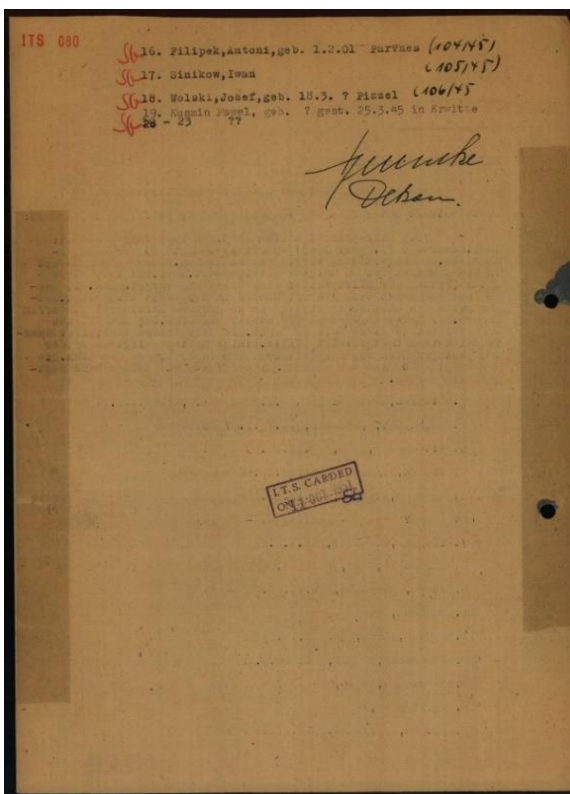 ITS 080
16. Filipek,Antoni,geb. 1.2.01 Parvnes (104/45)
17. Sinikow,Iwan (105/45)
18. Wolski,Josef,geb. 18.3. ? Pizzel (106/45
19. Kusmin Pawel, geb. ? gest. 25.3.45 in Erwitte
20 - 23 ??
Dekan.
I.T.S. CARDED
ON